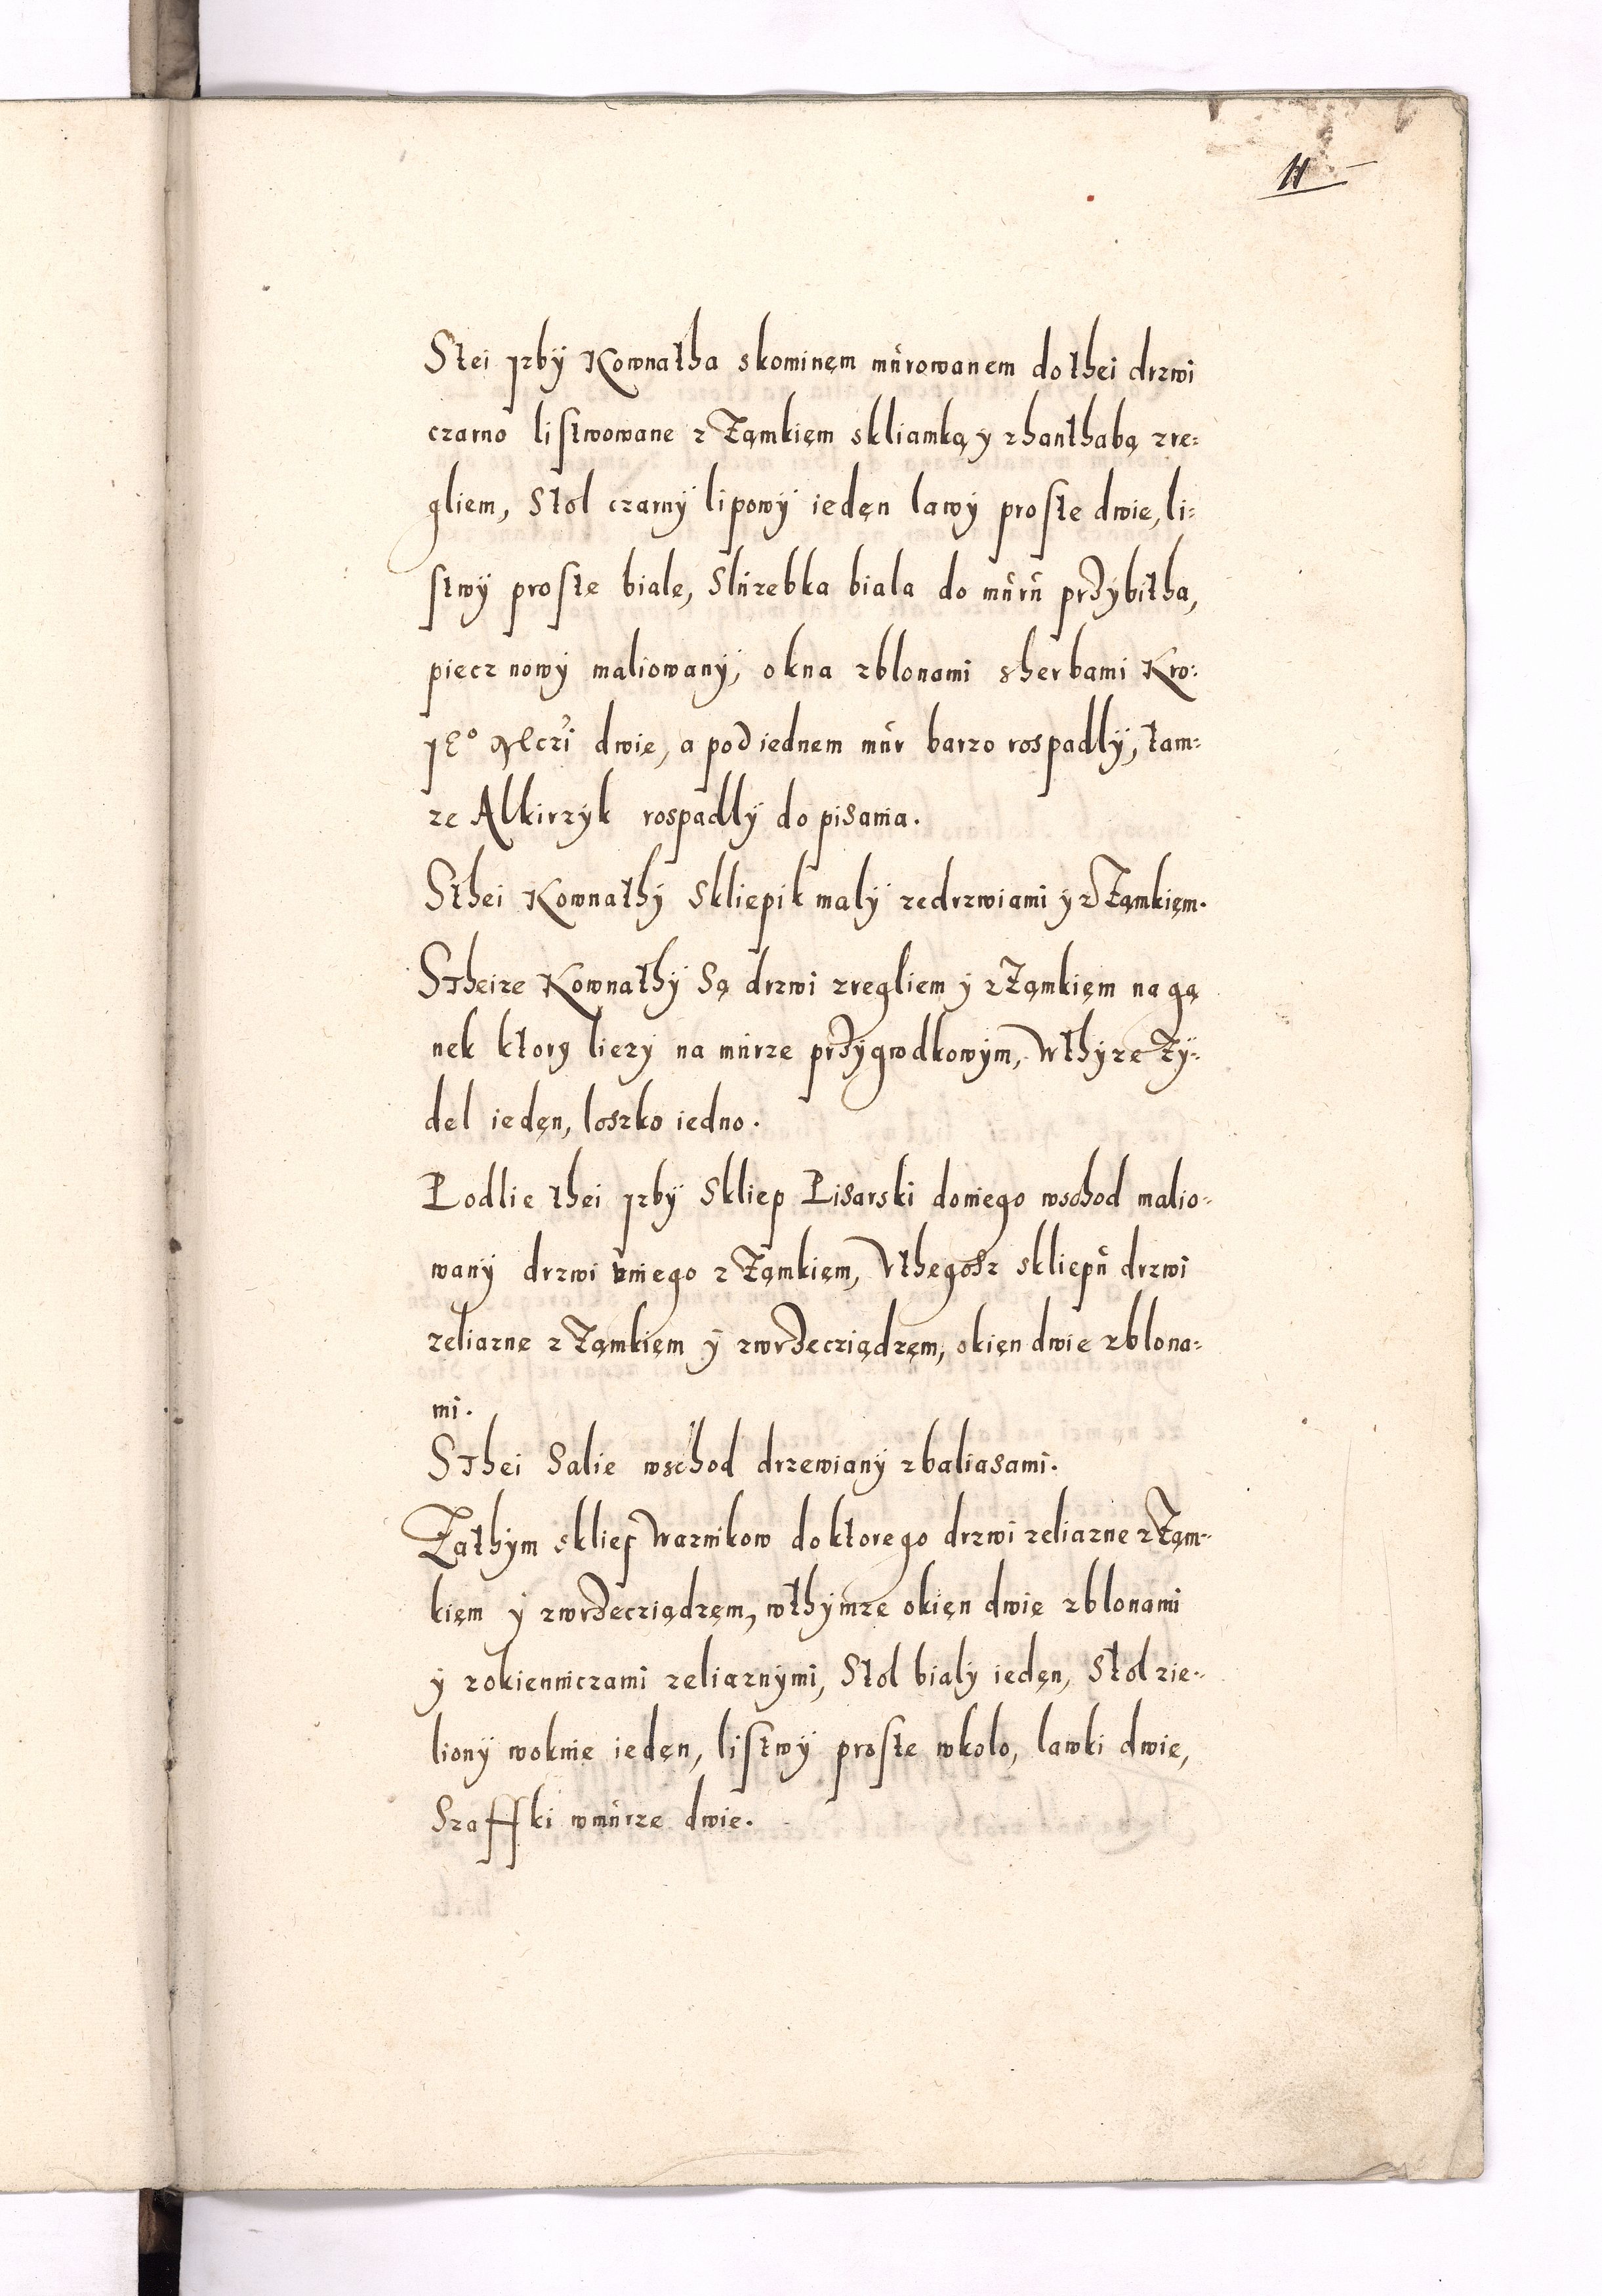 11
Stei jzbÿ Kownatha skominęm můrowanem do thei drzwi
czarno listwowane z Zamkięm skliamką ÿ zhanthabą zre=
gliem, Stol czarnÿ lipowÿ iedęn lawÿ proste dwie, li=
stwÿ proste biale, Slůzebka biala do můrů przÿbitha,
piecz nowÿ maliowanÿ, okna zblonami sherbami Kro:
dwie, a pod iednem můr barzo rospadlÿ, tam=
ze Alkirzÿk rospadlÿ do pisania.
Sthei Kownathÿ Skliepik malÿ zedrzwiami ÿ z Zamkięm.
Stheize Kownathÿ Są drzwi zregliem ÿ z Zamkięm na gą
nek ktorÿ liezÿ na můrze przÿgwdkowÿm, Wthÿze Zÿ=
del iedęn, loszko iedno.
Podlie thei jzbÿ Skliep Pisarski doniego wschod malio=
wanÿ drzwi vniego z Zamkięm, Vthegosz skliepů drzwi
zeliazne z Zamkięm ÿ zwrzecziądzęm, okięn dwie zblona=
mi.
Sthei Salie wschod drzewianÿ zbaliasami.
Zathÿm skliep Warnikow do ktorego drzwi zeliazne z Zam=
kięm ÿ zwrzecziądzęm, wthÿmze okięn dwie zblonami
ÿ zokienniczami zeliaznÿmi, Stol bialÿ iedęn, Stol zie=
lionÿ woknie iedęn, listwÿ proste wkolo, lawki dwie,
Szaffki wmůrze dwie.